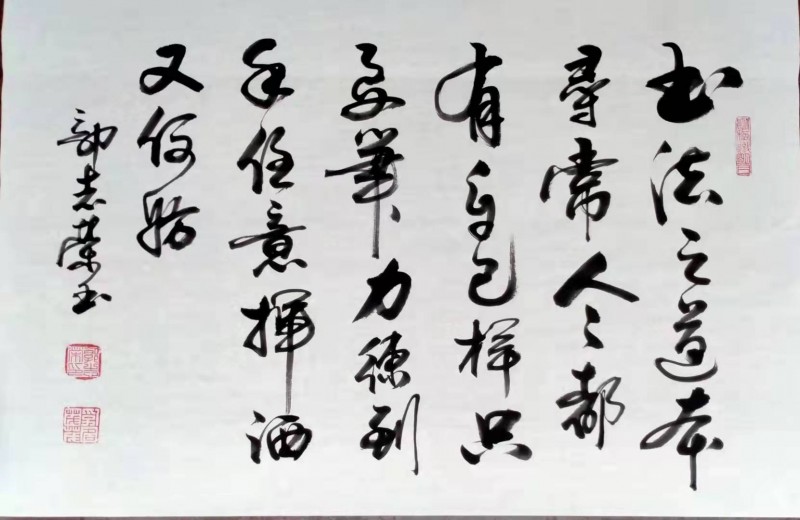 书法之道本
尋常人々都
有自己样只
要筆力练到
手任意揮洒
又何妨
郭志荣书